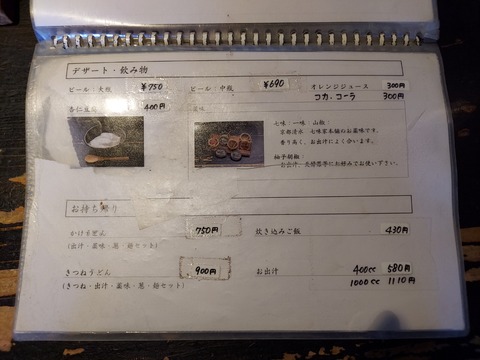 デザート・飲み物
ビール・大瓶 ¥750 ビール・中瓶 ¥690 オレンジジュース 300円
コカ・コーラ 300円
杏仁豆腐 400円 薬味
七味・一味・山椒：
京都清水 七味家本舗のお薬味です。
香り高く、お出汁によく合います。
柚子胡椒
お持ち帰り
かけうどん 750円 炊き込みご飯 430円
(出汁・薬味・葱・麺セット)
きつねうどん 900円 お出汁 400cc 580円
(きつね・出汁・薬味・葱・麺セット) 1000cc 1110円